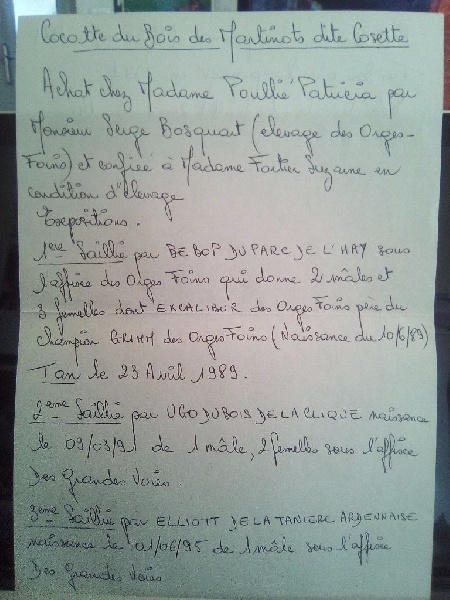 Cocotte du Bois des Martinots dite Cosette
Achat chez Madame Poullié Patricia par
Monsieur Serge Bosquart (elevage des Orges-
Foins) et confiée à Madame Fortier Suzanne en
condition d'elevage
Expositions.
1ère Saillie par BE BOP DU PARC DE L'HAY sous
l'affixe des Orges Foins qui donne 2 mâles et
3 femelles dont EXCALIBUR des Orges Foins père du
champion GRIMM des Orges Foins (Naissance du 10/6/89)
Tan le 23 Avril 1989.
2ème Saillie par UGO DU BOIS DE LA CLIQUE naissance
le 09/03/91 de 1 mâle, 2 femelles sous l'affixe
Des Grandes Voies.
3ème Saillie par ELLIOTT DE LA TANIERE ARDENNAISE
naissance le 01/06/95 de 1 mâle sous l'affixe
Des Grandes Voies